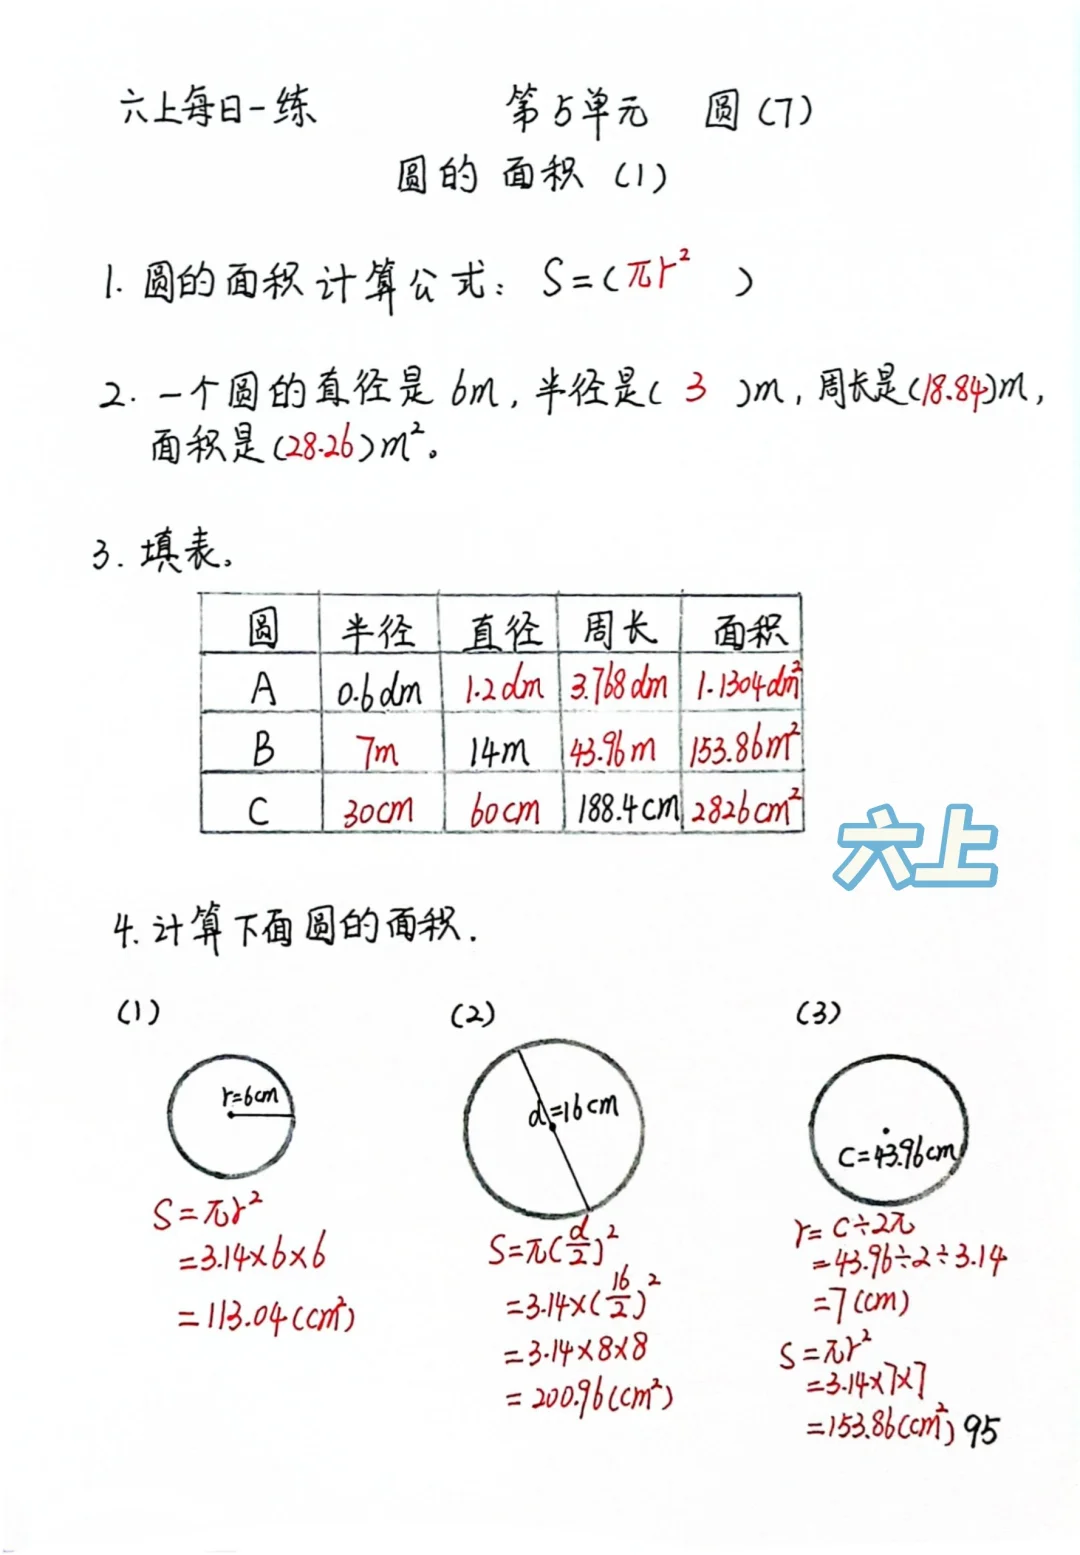 六上每日一练 第5单元 圆(7)
圆的面积(1)
1. 圆的面积计算公式: S=(πr²)
2. 一个圆的直径是6m,半径是(3)m,周长是(18.84)m,
面积是(28.26)m²。
3. 填表。
圆 半径 直径 周长 面积
A 0.6dm 1.2dm 3.768dm 1.1304dm²
B 7m 14m 43.96m 153.86m²
C 30cm 60cm 188.4cm 2826cm²
六上
4. 计算下面圆的面积.
(1) (2) (3)
r=6cm
d=16cm
C=43.96cm
S=πr²
=3.14×6×6
=113.04(cm²)
S=π(d/2)²
=3.14×(16/2)²
=3.14×8×8
=200.96(cm²)
r=C÷2π
=43.96÷2÷3.14
=7(cm)
S=πr²
=3.14×7×7
=153.86(cm²)
95